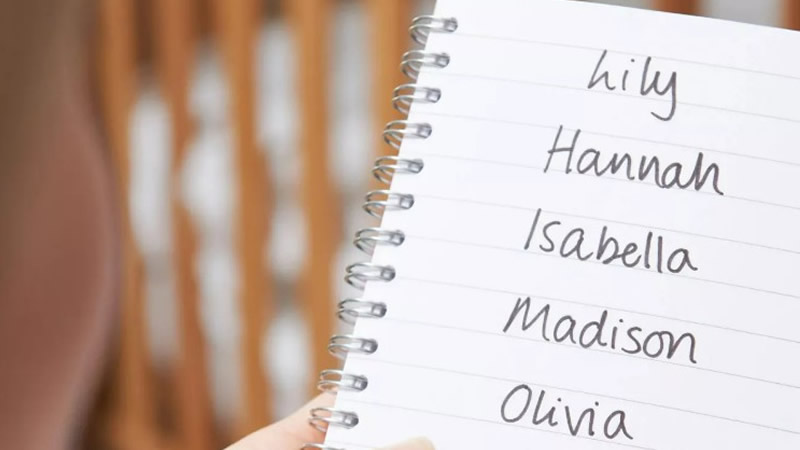 Lily
Hannah
Isabella
Madison
Olivia